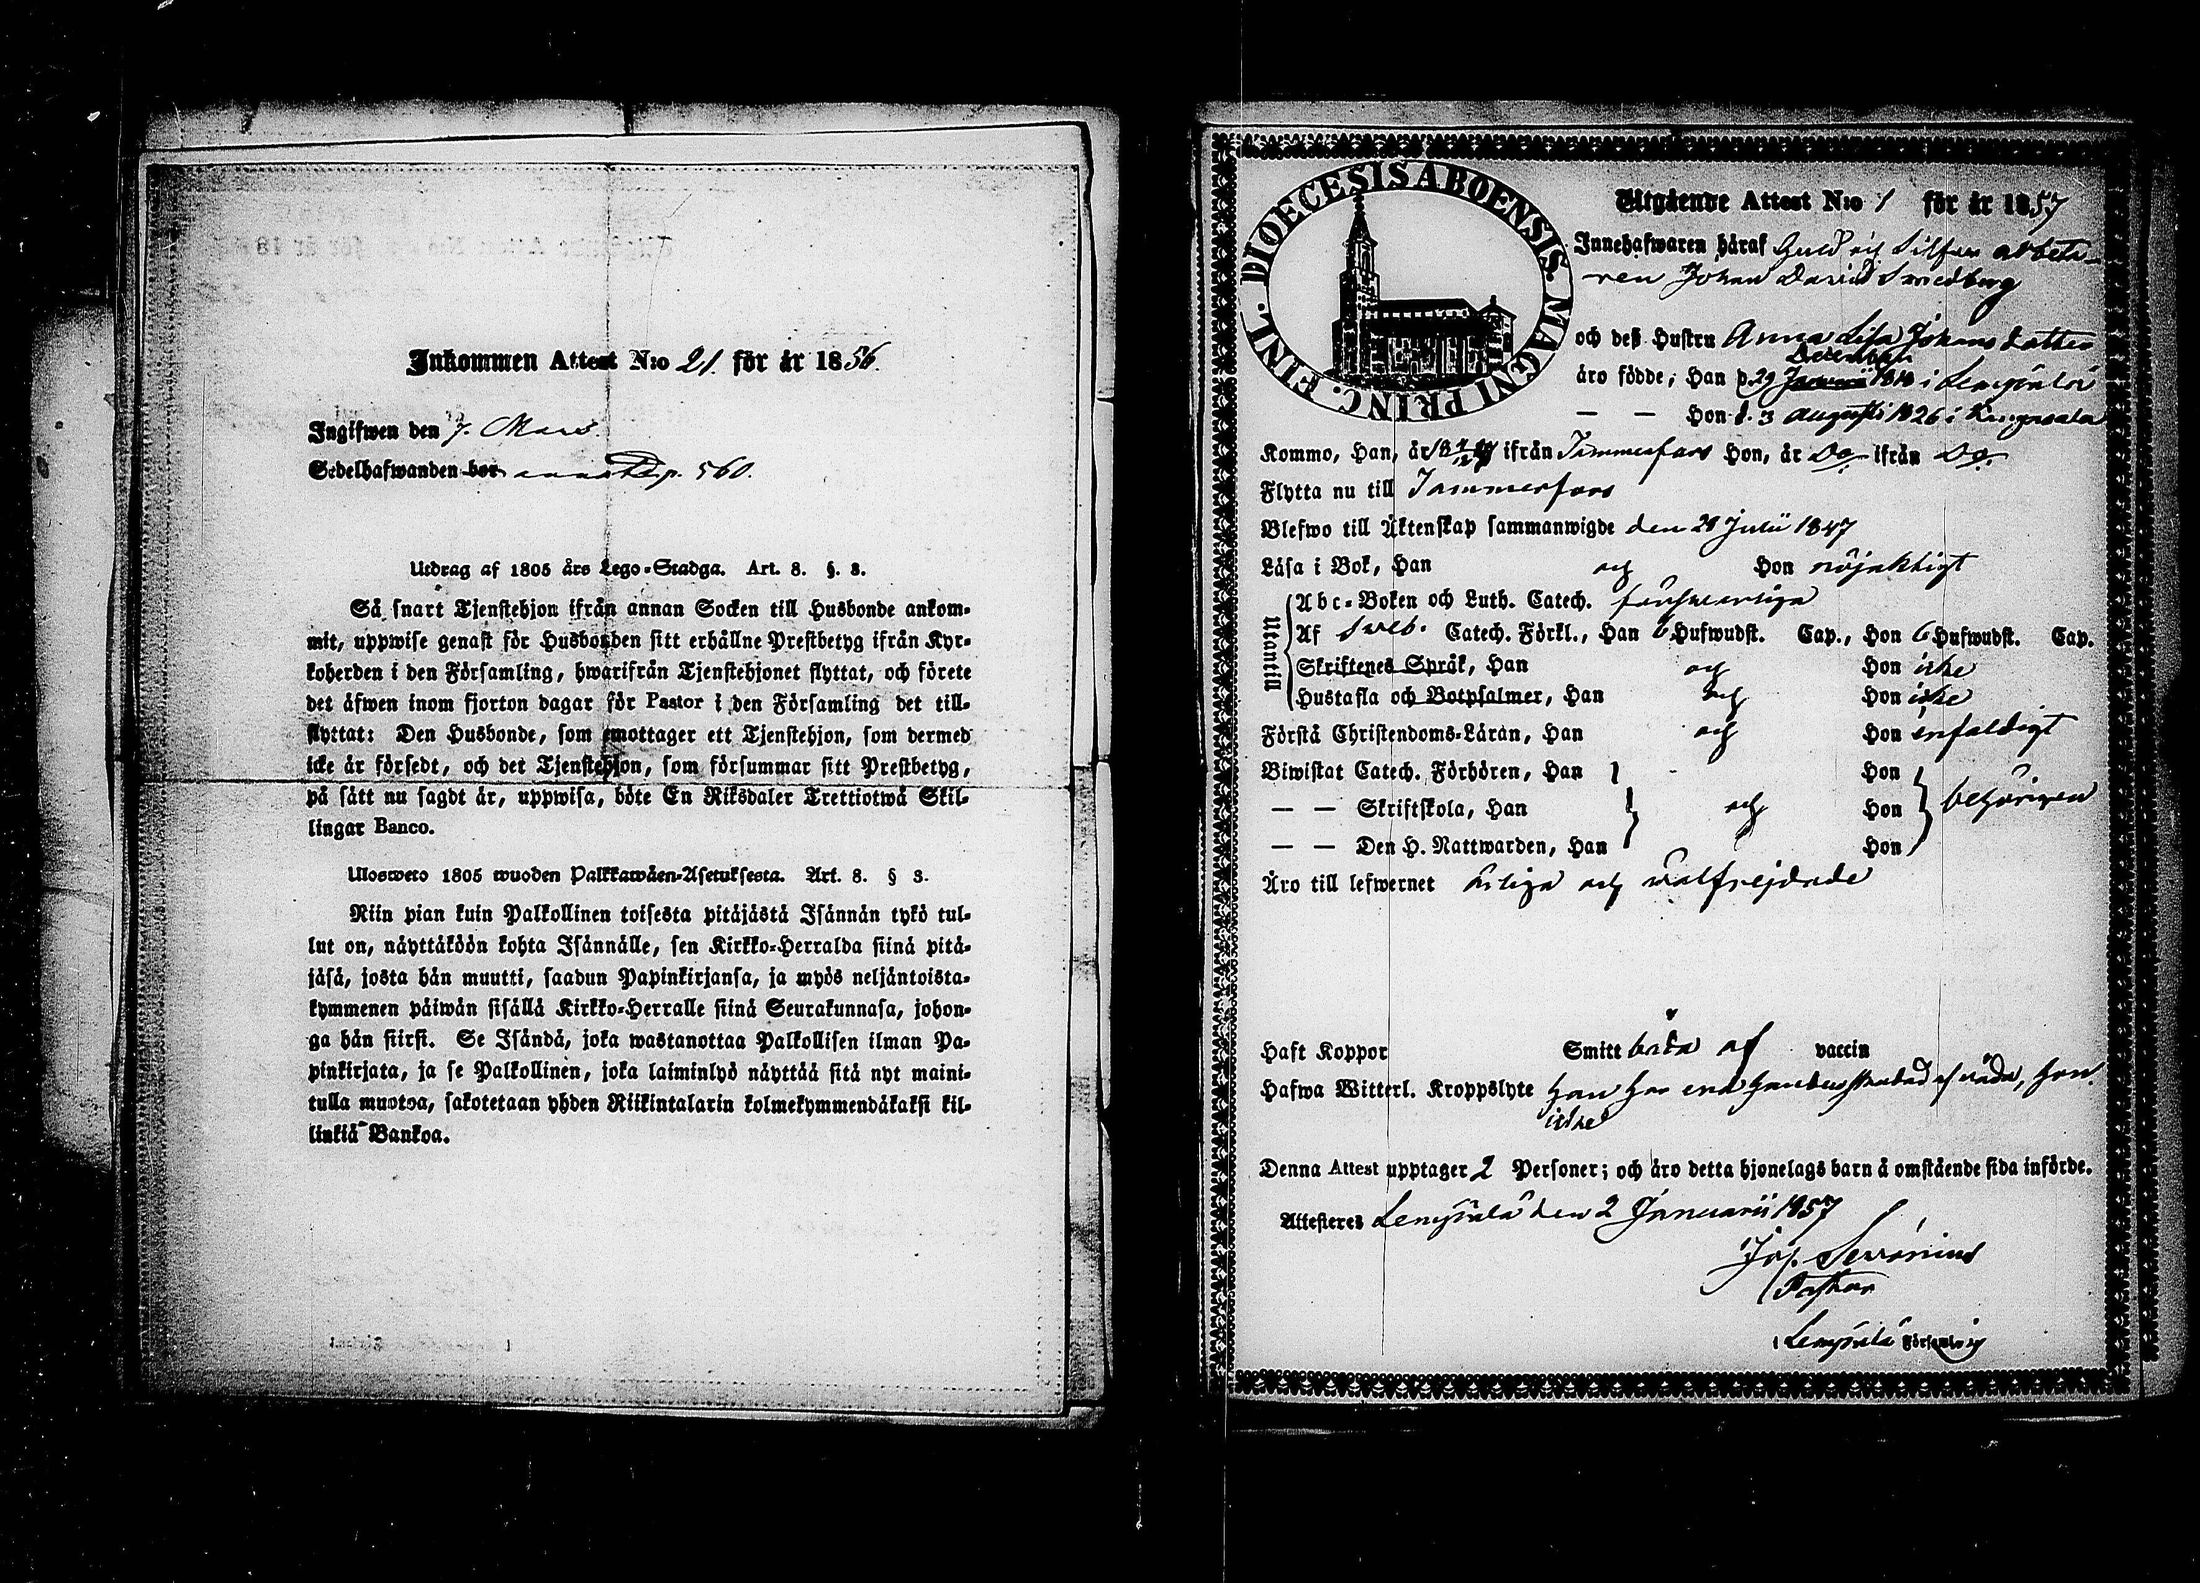 Inkommen Attest N:o 21. för år 1856.
Ingifwen den 7. Mars.
Sedelhafwanden bor p. 560.
Utdrag af 1805 års Lego-Stadga. Art. 8. §. 3.
Så snart Tjenstehjon ifrån annan Socken till Husbonde ankom-
mit, uppwise genast för Husbonden sitt erhållne Prestbetyg ifrån Kyr-
koherden i den Församling, hwarifrån Tjenstehjonet flyttat, och förete
det äfwen inom fjorton dagar för Pastor i den Församling det till-
flyttat: Den Husbonde, som emottager ett Tjenstehjon, som dermed
icke är försedt, och det Tjenstehjon, som försummar sitt Prestbetyg,
på sätt nu sagdt är, uppwisa, böte En Riksdaler Trettiotwå Skil-
lingar Banco.
Ulosweto 1805 wuoden Palkkawäen-Asetuksesta. Art. 8. § 3.
Niin pian kuin Palkollinen toisesta pitäjästä Isännän tykö tul-
lut on, näyttäköön kohta Isännälle, sen Kirkko-Herralda siinä pitä-
jäsä, josta hän muutti, saadun Papinkirjansa, ja myös neljäntoista-
kymmenen päiwän sisällä Kirkko-Herralle siinä Seurakunnasa, johon-
ga hän siirsi. Se Isändä, joka wastanottaa Palkollisen ilman Pa-
pinkirjata, ja se Palkollinen, joka laiminlyö näyttää sitä nyt maini-
tulla muotoa, sakotetaan yhden Riikintalarin kolmekymmendäkaksi kil-
linkiä Bankoa.
DIOECESIS ABOENSIS. MAGNI PRINC. FINL.
Utgående Attest N:o 1 för år 1857
Innehafwaren häraf Guld och Silfver arbeta-
ren Johan David Smedberg
och deß Hustru Anna Lisa Johansdotter
December
äro födde; Han d. 29 Januarii 1818 i Lempälä
— — Hon d. 3 Augusti 1826 i Kangasala
Kommo, Han, år ifrån Tammerfors Hon, år Do. ifrån Do.
Flytta nu till Tammerfors
Blefwo till Äktenskap sammanwigde den 28 Julii 1847
Läsa i Bok, Han och Hon nöjaktigt
Utantill
Abc-Boken och Luth. Catech. försvarliga
Af Sveb. Catech. Förkl., Han 6 Hufwudst. Cap., Hon 6 Hufwudst. Cap.
Skriftenes Språk, Han och Hon icke
Hustafla och Botpsalmer, Han och Hon icke
Förstå Christendoms-Läran, Han och Hon enfaldigt
Biwistat Catech. Förhören, Han Hon
— — Skriftskola, Han och Hon behörigen
— — Den H. Nattwarden, Han Hon
Äro till lefwernet ärliga och välfrejdade
Haft Koppor Smitt båda af vaccin
Hafwa Witterl. Kroppslyte Han har af våda, hon
icke
Denna Attest upptager 2 Personer; och äro detta hjonelags barn å omstående sida införde.
Attesteres Lempälä den 2 Januarii 1857
Jos. Serenius
Pastor
i Lempälä Församling